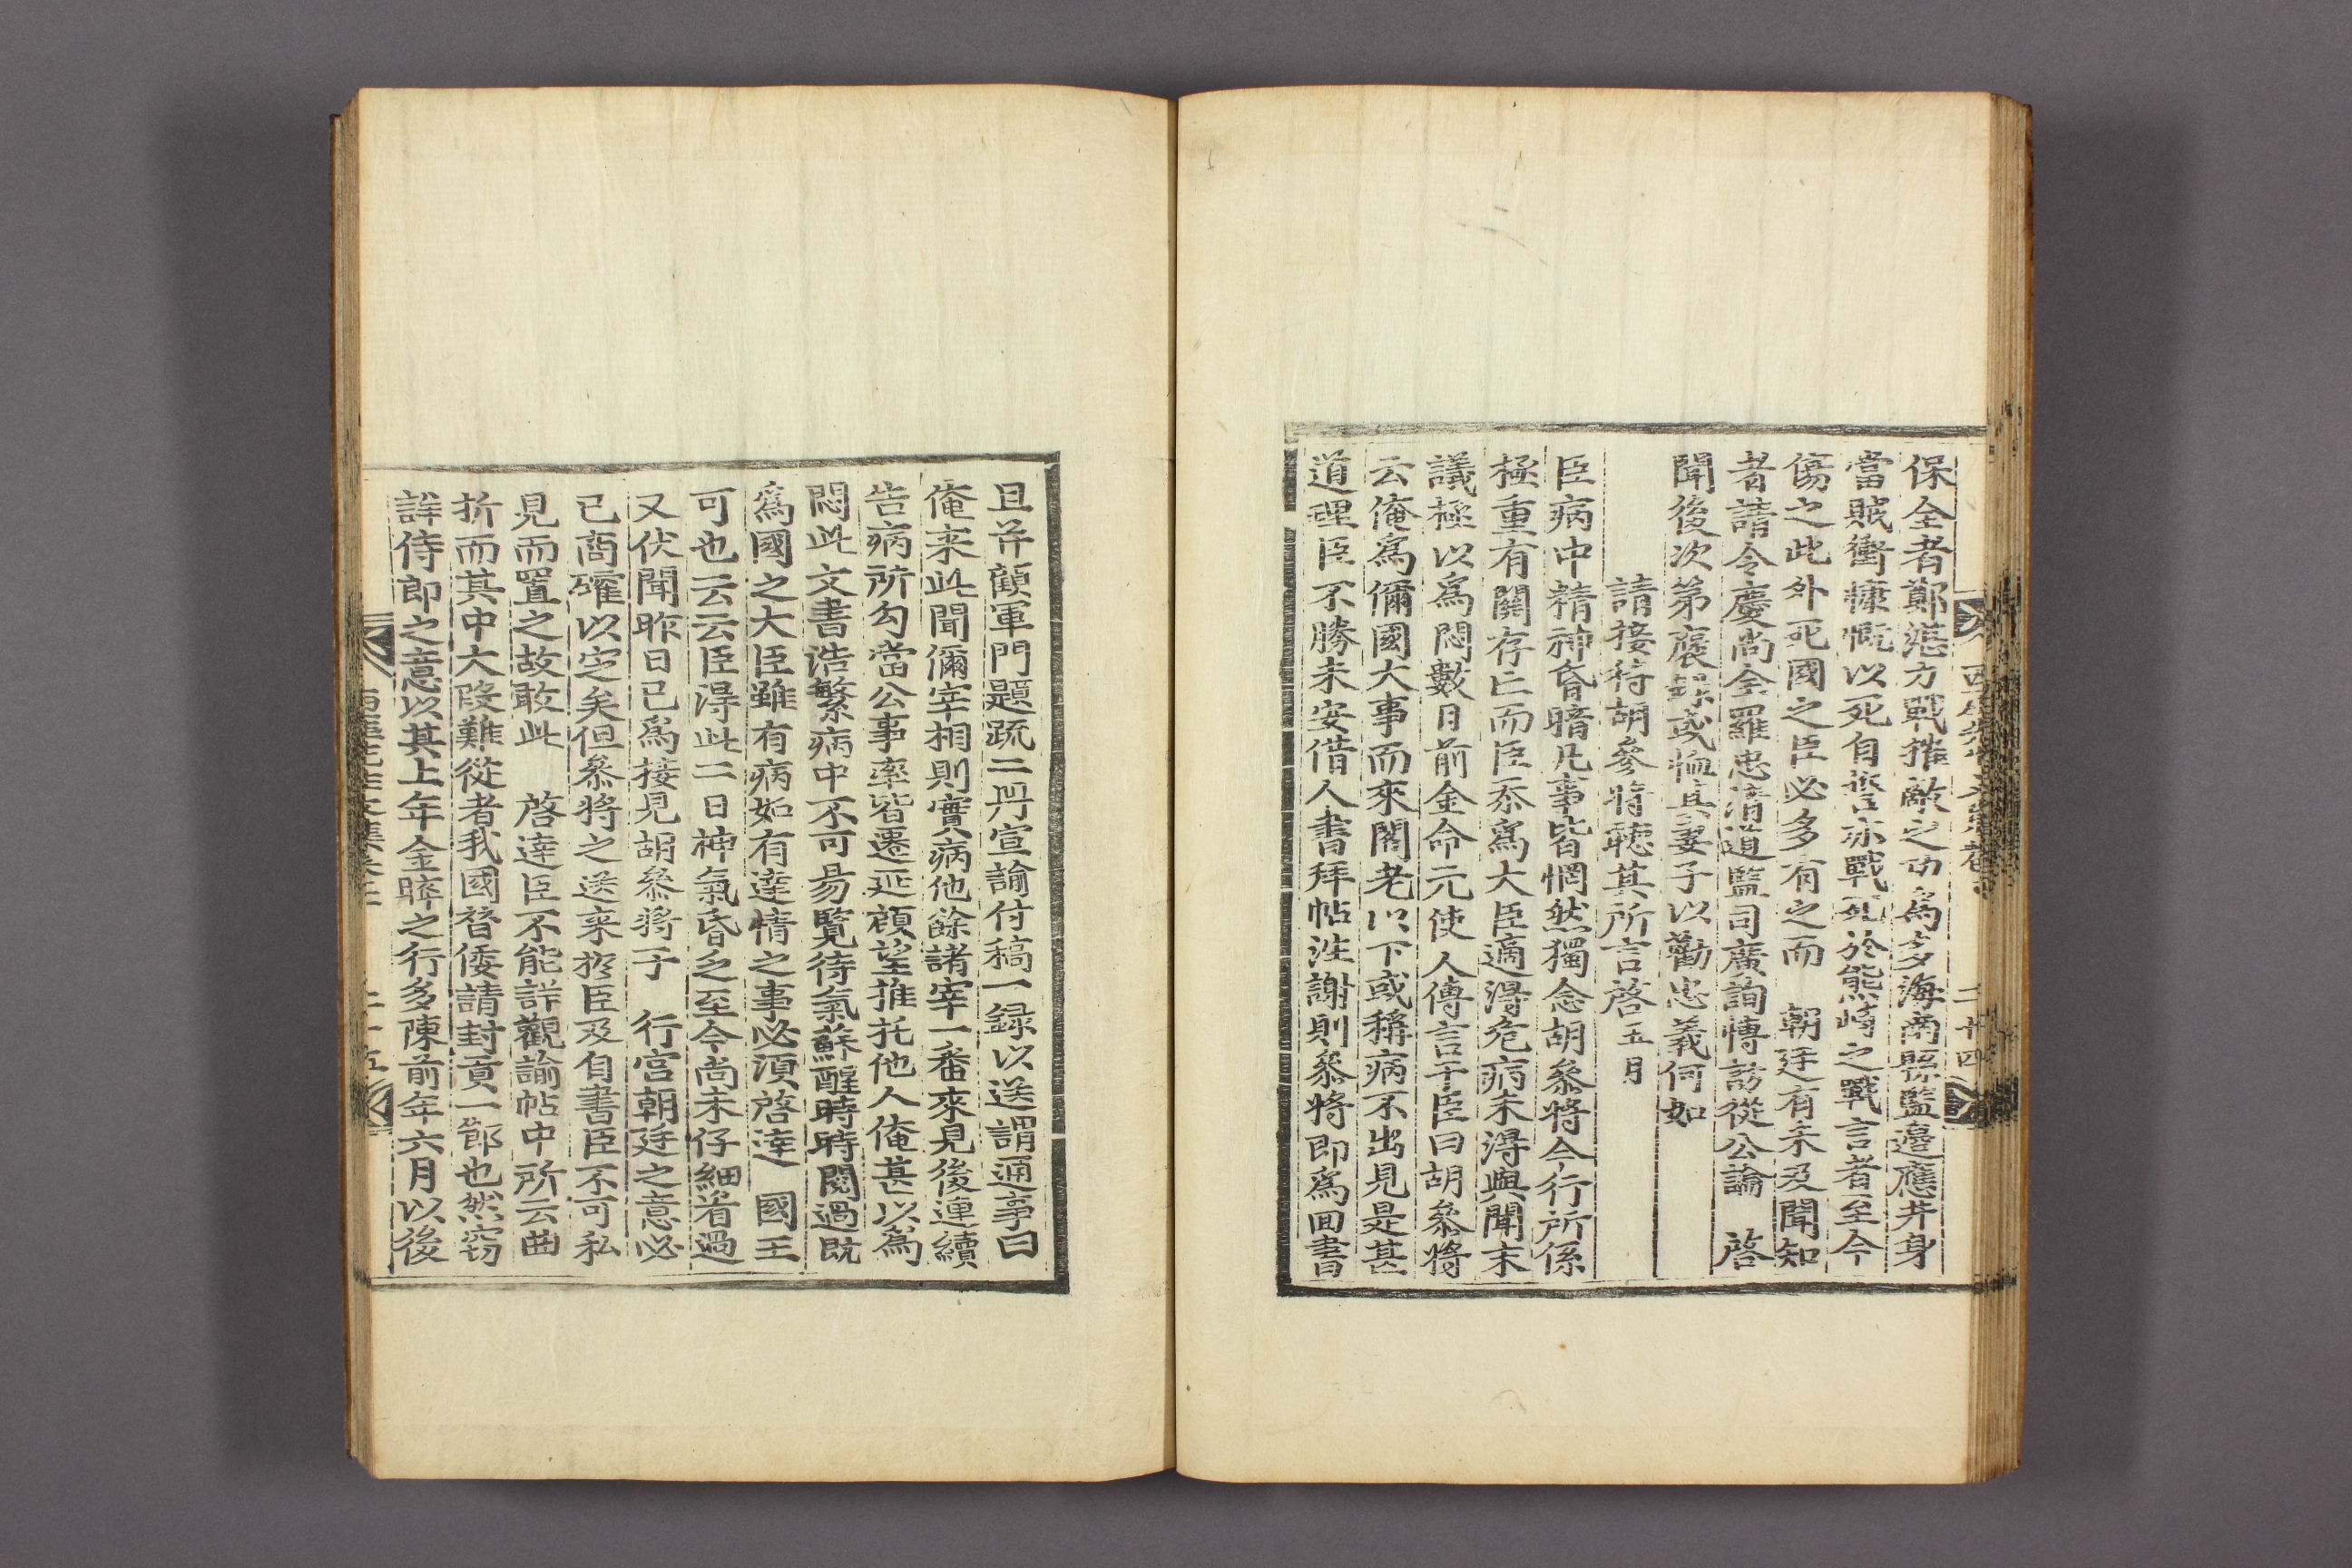 保全者鄭湛方戰摧敵之功爲多海南縣監邊應井身
當賊衝慷慨以死自誓亦戰死於熊峙之戰言者至今
傷之此外死國之臣必多有之而 朝廷有未及聞知
者請令慶尚全羅忠淸道監司廣詢愽訪從公論 啓
聞後次第襃錄或恤其妻子以勸忠義何如
請接待胡參將聽其所言啓 五月
臣病中精神昏暗凡事皆惘然獨念胡叅將今行所係
極重有關存亡而臣忝爲大臣適得危病未得與聞末
議極以爲悶數日前金命元使人傳言于臣曰胡叅將
云俺爲儞國大事而來閣老以下或稱病不出見是甚
道理臣不勝未安借人書拜帖泩謝則叅將即爲回書
且幷顧軍門題疏二冊宣諭付稿一録以送謂通事曰
俺来此聞儞宰相則實病他餘諸宰一番來見後連續
告病所勾當公事率皆遷延顧望推托他人俺甚以爲
悶此文書浩繁病中不可昜覽待氣蘇醒時時閱過旣
爲國之大臣雖有病如有達情之事必須啓達 國王
可也云云臣得此二日神氣昏乏至今尚未仔細省過
又伏聞昨日已爲接見胡叅將于 行宮朝廷之意必
已商確以定矣但叅將之送来於臣及自書臣不可私
見而置之故敢此 啓達臣不能詳觀諭帖中所云曲
折而其中大段難從者我國替倭請封貢一節也然窃
詳侍郎之意以其上年金睟之行多陳前年六月以後